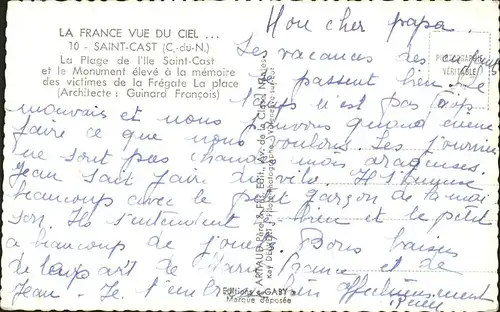 LA FRANCE VUE DU CIEL ...
10 - SAINT-CAST (C.-du-N.)
La Plage de l'Ile Saint-Cast
et le Monument élevé à la mémoire
des victimes de la Frégate La place
(Architecte : Guinard François)
PHOTOGRAPHIE
VÉRITABLE
Mon cher papa.
Les vacances des enfants
se passent bien. Le
temps n'est pas trop
mauvais et nous pouvons quand même
faire ce que nous voulons. Les journées
ne sont pas chaudes mais orageuses.
Jean sait faire du vélo. Il s'amuse
beaucoup avec le petit garçon de la mai
son. Ils s'entendent bien et le petit
a beaucoup de jouets. Bons baisers
de la part de Marie France et de
Jean. Je t'embrasse bien affectueusement
Editions "GABY"
Marque déposée